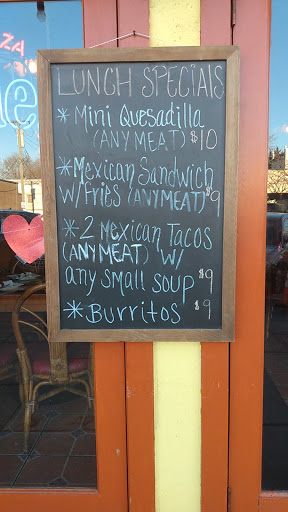 ZA
LUNCH SPECIALS
* Mini Quesadilla
(ANY MEAT) $10
* Mexican Sandwich
W/Fries (ANY MEAT) $9
* 2 Mexican Tacos
(ANY MEAT) W/
any small soup $9
* Burritos $9